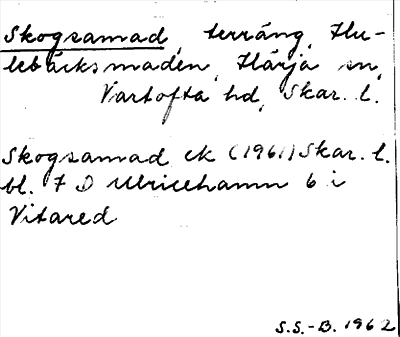 Skogsamad, terräng, Hu-
lebäcksmaden, Härja sn,
Vartofta hd, Skar. l.
Skogsamad ek (1961) Skar. l.
bl. 7 D Ulricehamn 6 i
Vitared
S.S.-B. 1962